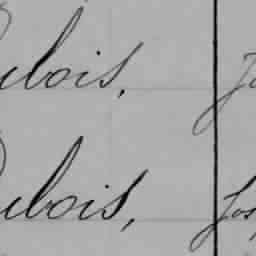 ubois, J
ubois, Jos